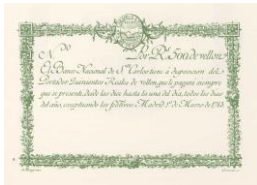 N.º
Los R.s 500. de vellon.
El Banco Nacional de S.n Carlos tiene á disposicion del
Portador Quinientos Reales de vellon, que le pagará siempre
que se presente, desde las diez hasta la una del dia, todos los dias
del año, exceptuando los festivos. Madrid 1.º de Marzo de 1783.